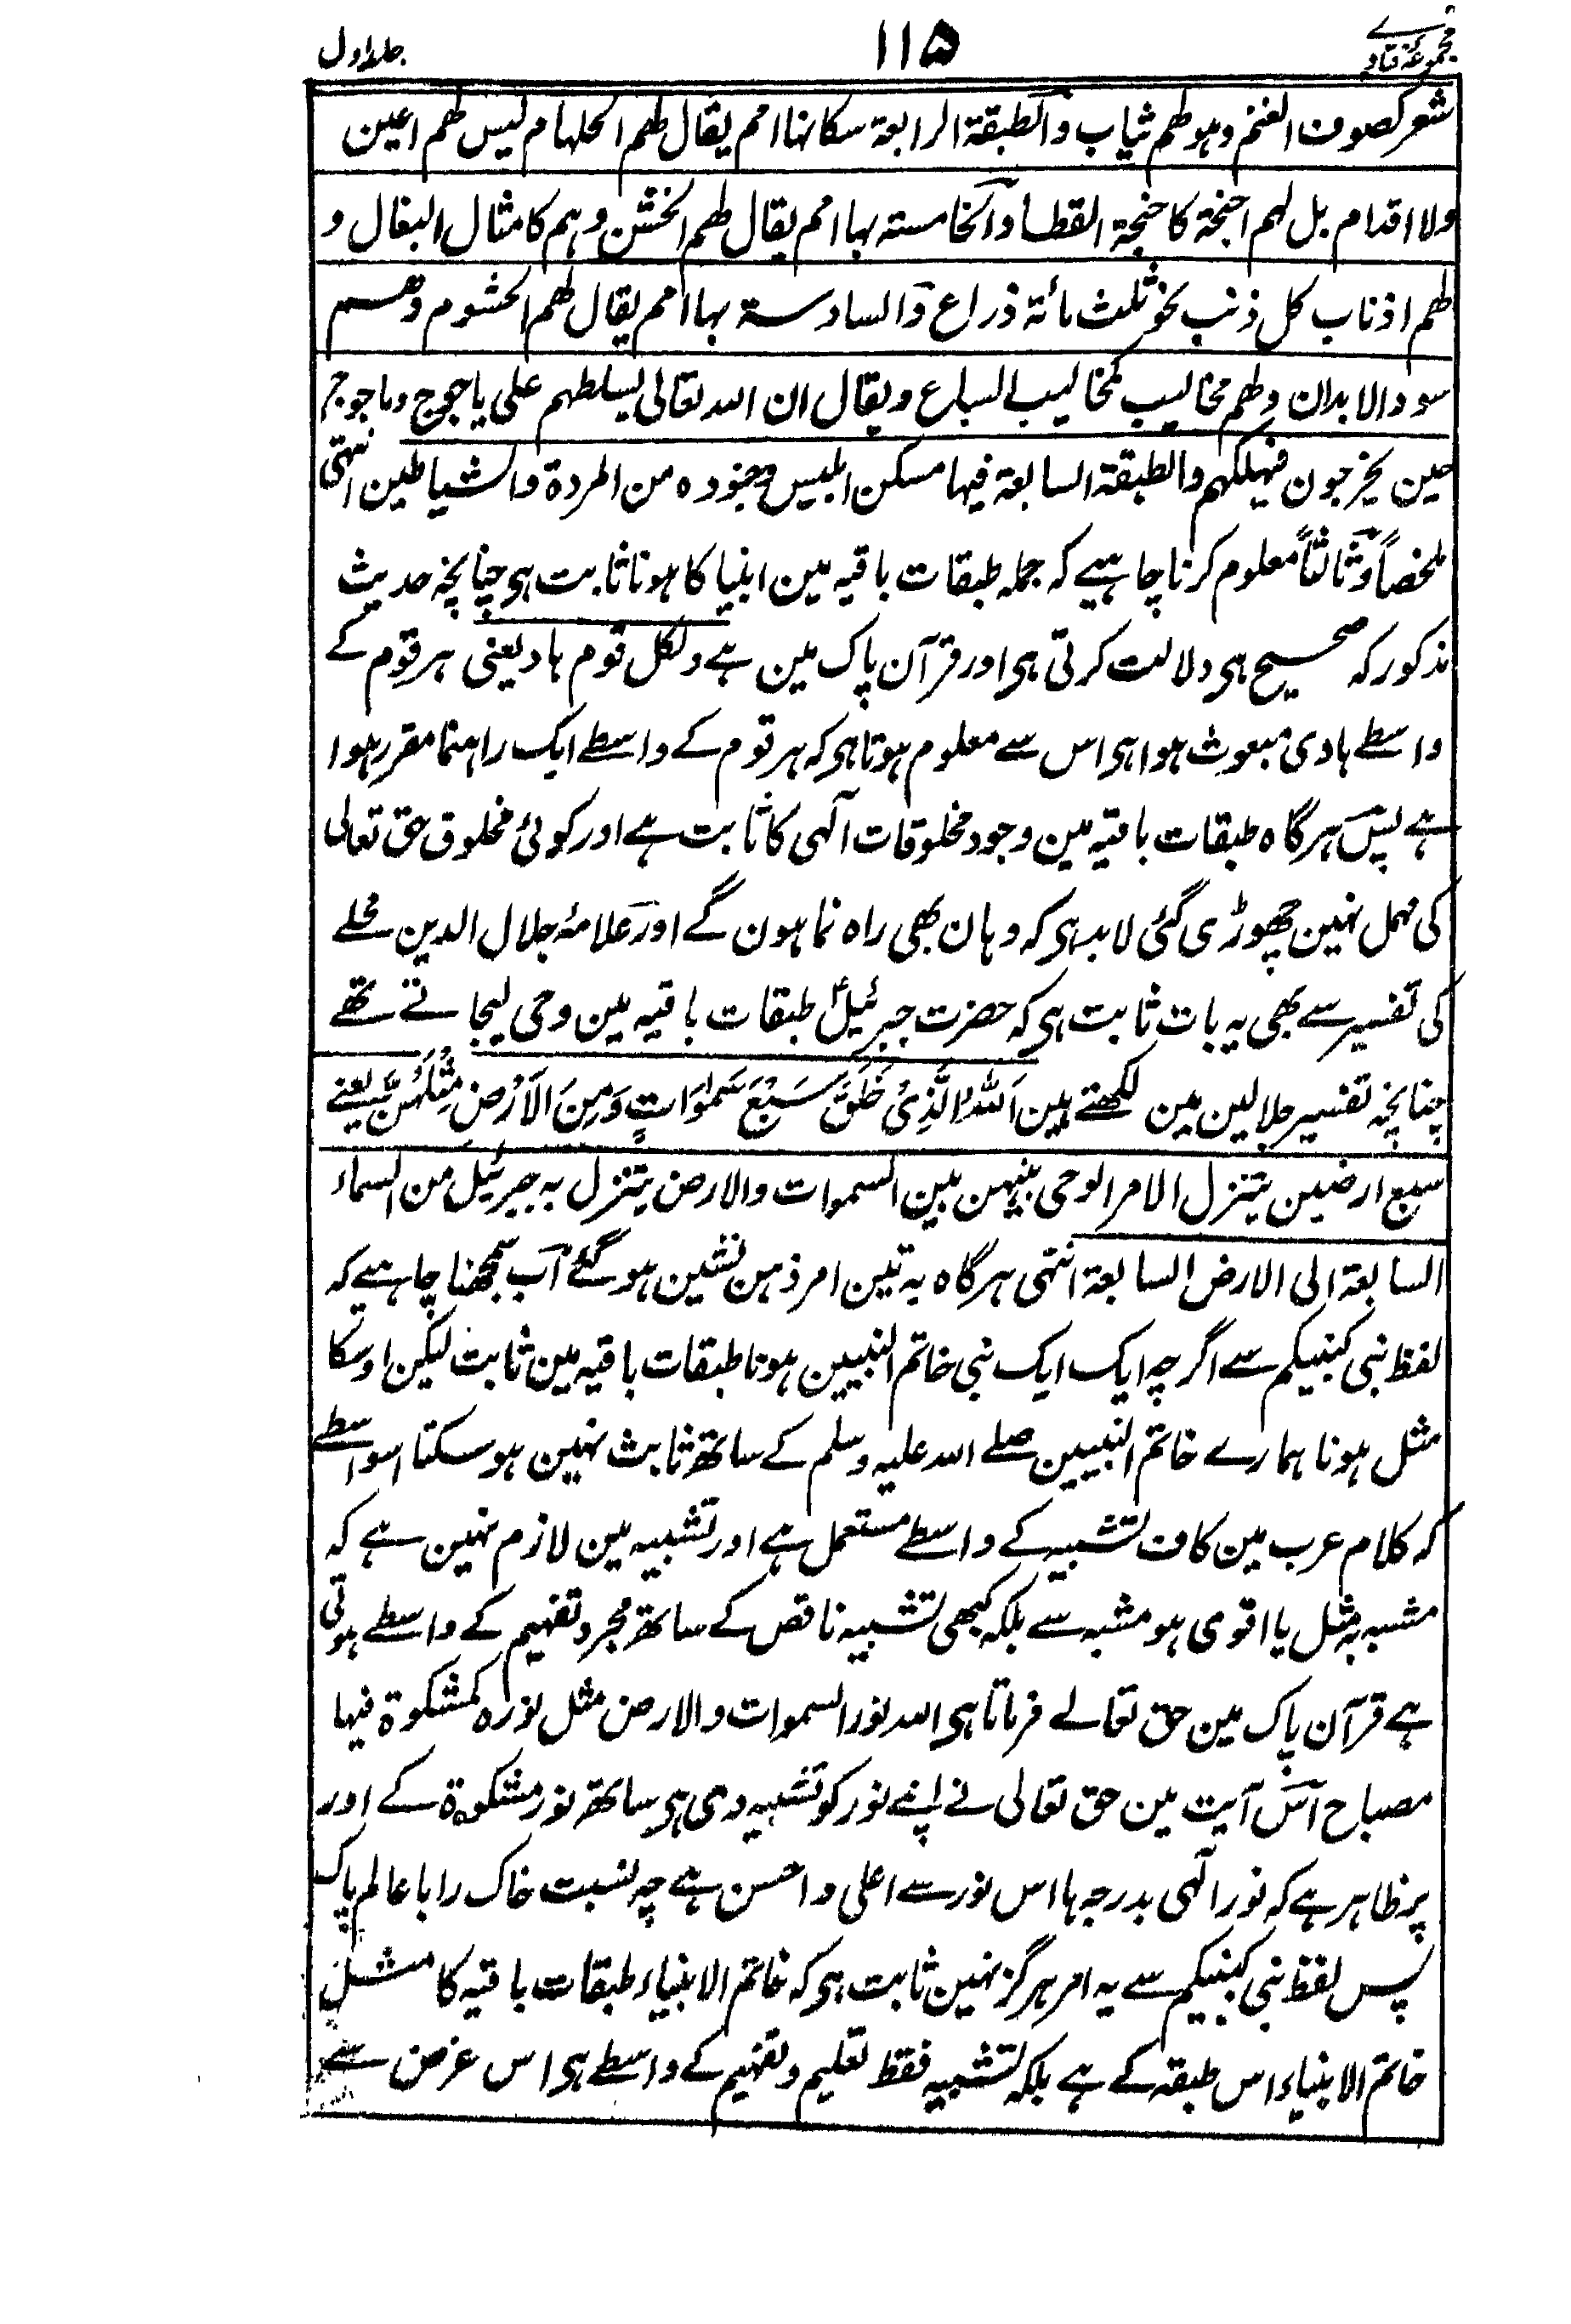 مجموعۂ فتاوے ۱۱۵ جلد اول
شعر كصوف الغنم وهو لهم ثياب والطبقة الرابعة سكانها امم يقال لهم الحلهام ليس لهم اعين
ولا اقدام بل لهم اجنحة كاجنحة القطا والخامسة بها امم يقال لهم الخشن وهم كامثال البغال و
لهم اذناب كل ذنب نحو ثلث مائة ذراع والسادسة بها امم يقال لهم الحشوم وهم
سود الابدان ولهم مخاليب كمخاليب السباع ويقال ان الله تعالى يسلطهم على ياجوج وماجوج
حين يخرجون فيهلكهم والطبقة السابعة فيها مسكن ابليس وجنوده من المردة والشياطين انتهى
ملخصاً وثالثاً معلوم کرنا چاہیے کہ جملہ طبقات باقیہ مین انبیا کا ہونا ثابت ہی چنانچہ حدیث
مذکور کہ صحیح ہی دلالت کرتی ہی اور قرآن پاک مین ہے ولکل قوم هاد یعنی ہر قوم کے
واسطے ہادی مبعوث ہوا ہی اس سے معلوم ہوتا ہی کہ ہر قوم کے واسطے ایک راہنما مقرر ہوا
ہے پس ہرگاہ طبقات باقیہ مین وجود مخلوقات الٰہی کا ثابت ہے اور کوئی مخلوق حق تعالی
کی مہمل نہین چھوڑی گئی لابد ہی کہ وہان بھی راہ نما ہون گے اور علامۂ جلال الدین محلے
کی تفسیر سے بھی یہ بات ثابت ہی کہ حضرت جبرئیلؑ طبقات باقیہ مین وحی لیجاتے تھے
چنانچہ تفسیر جلالین مین لکھتے ہین اَللّٰهُ الَّذِیْ خَلَقَ سَبْعَ سَمٰوَاتٍ وَمِنَ الْاَرْضِ مِثْلَهُنَّ یعنے
سبع ارضين يتنزل الامر الوحي بينهن بين السموات والارض يتنزل به جبرئيل من السماء
السابعة الى الارض السابعة انتهى ہرگاہ یہ تین امر ذہن نشین ہوگئے اب سمجھنا چاہیے کہ
لفظ نبی کنبیکم سے اگرچہ ایک ایک نبی خاتم النبیین ہونا طبقات باقیہ مین ثابت لیکن اوسکا
مثل ہونا ہمارے خاتم النبیین صلے اللہ علیہ وسلم کے ساتھ ثابت نہین ہوسکتا اسواسطے
کہ کلام عرب مین کاف تشبیہ کے واسطے مستعمل ہے اور تشبیہ مین لازم نہین ہے کہ
مشبہ بہ مثل یا اقوی ہو مشبہ سے بلکہ کبھی تشبیہ ناقص کے ساتھ مجرد تفہیم کے واسطے ہوتی
ہے قرآن پاک مین حق تعالے فرماتا ہی الله نور السموات والارض مثل نوره كمشكوة فيها
مصباح اس آیت مین حق تعالی نے اپنے نور کو تشبیہ دی ہی ساتھ نور مشکوۃ کے اور
پر ظاہر ہے کہ نور الٰہی بدرجہا اس نور سے اعلی و احسن ہے چہ نسبت خاک را با عالم پاک
پس لفظ نبی کنبیکم سے یہ امر ہرگز نہین ثابت ہی کہ خاتم الانبیاء طبقات باقیہ کا مثل
خاتم الانبیاء اس طبقہ کے ہے بلکہ تشبیہ فقط تعلیم و تفہیم کے واسطے ہی اس غرض سے